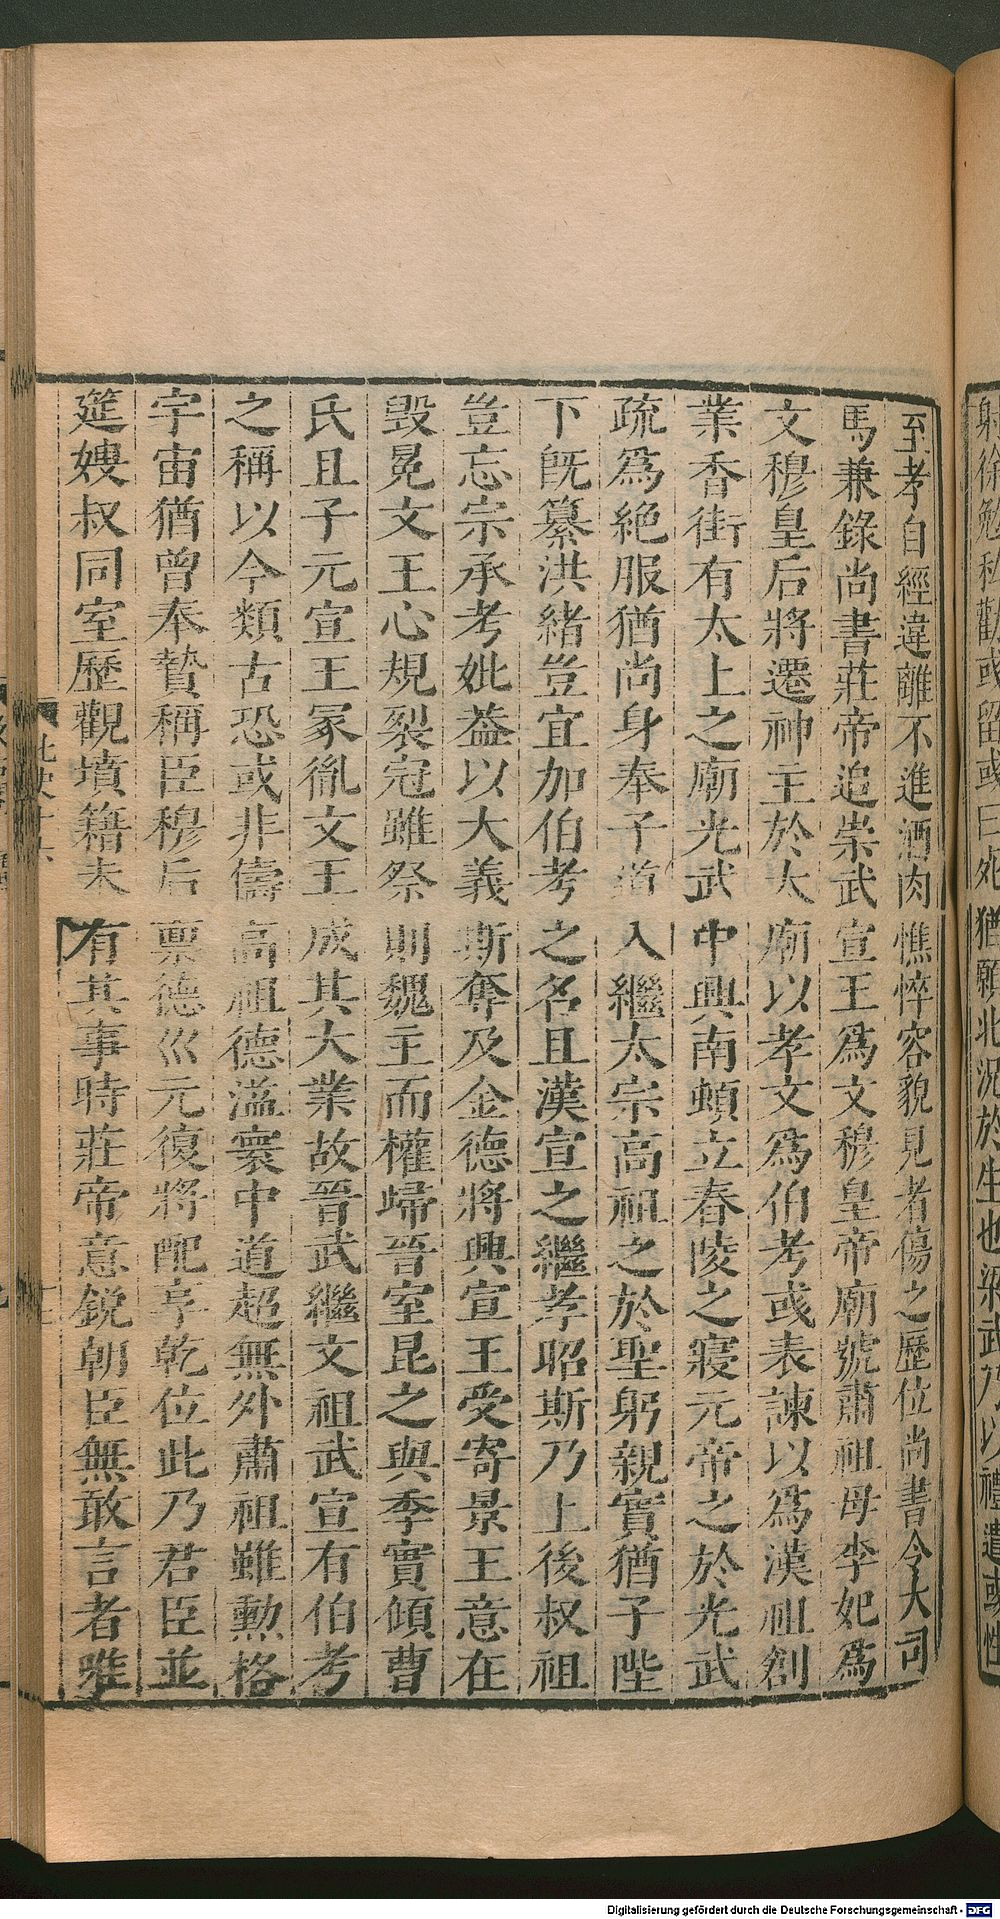 至孝自經違離不進酒肉憔悴容貌見者傷之歷位尚書令大司
馬兼錄尚書莊帝追崇武宣王爲文穆皇帝廟號肅祖母李妃爲
文穆皇后將遷神主於太廟以孝文爲伯考彧表諫以爲漢祖創
業香街有太上之廟光武中興南頓立春陵之寢元帝之於光武
疏爲絕服猶尚身奉子道入繼太宗高祖之於聖躬親實猶子陛
下既纂洪緒豈宜加伯考之名且漢宣之繼孝昭斯乃上後叔祖
豈忘宗承考妣蓋以大義斯奪及金德將興宣王受寄景王意在
毀冕文王心規裂冠雖祭則魏主而權歸晉室昆之與季實傾曹
氏且子元宣王冢胤文王成其大業故晉武繼文祖武宣有伯考
之稱以今類古恐或非儔高祖德溢寰中道超無外肅祖雖勳格
宇宙猶曾奉贄稱臣穆后稟德巛元復將配享乾位此乃君臣並
筵嫂叔同室歷觀墳籍未有其事時莊帝意銳朝臣無敢言者唯
射徐勉私勸彧留彧曰死猶願北況於生也梁武乃以禮遣彧性
Digitalisierung gefördert durch die Deutsche Forschungsgemeinschaft - DFG